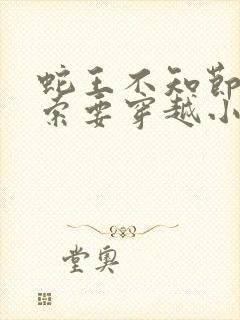 蛇王不知节
索要穿越小
堂奥